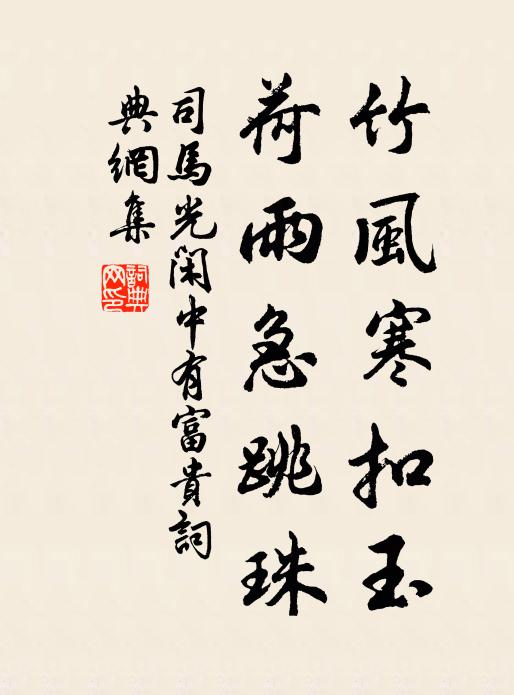 竹風寒扣玉
荷雨急跳珠
司馬光閑中有富貴詞
典網集
詞典网印